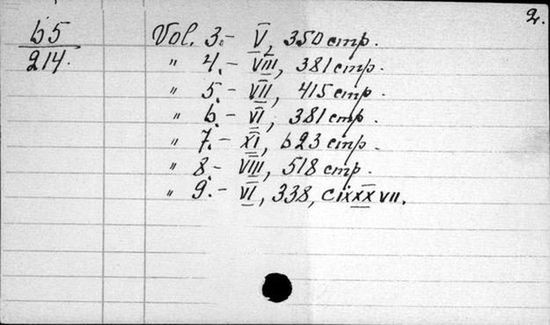 2.
b5
214.
Vol. 3.- V, 350 cmp.
" 4.- VIII, 381 cmp.
" 5.- VII, 415 cmp.
" 6.- VI, 381 cmp.
" 7.- XI, 623 cmp.
" 8.- VIII, 518 cmp.
" 9.- VI, 338, CIXXXVII.